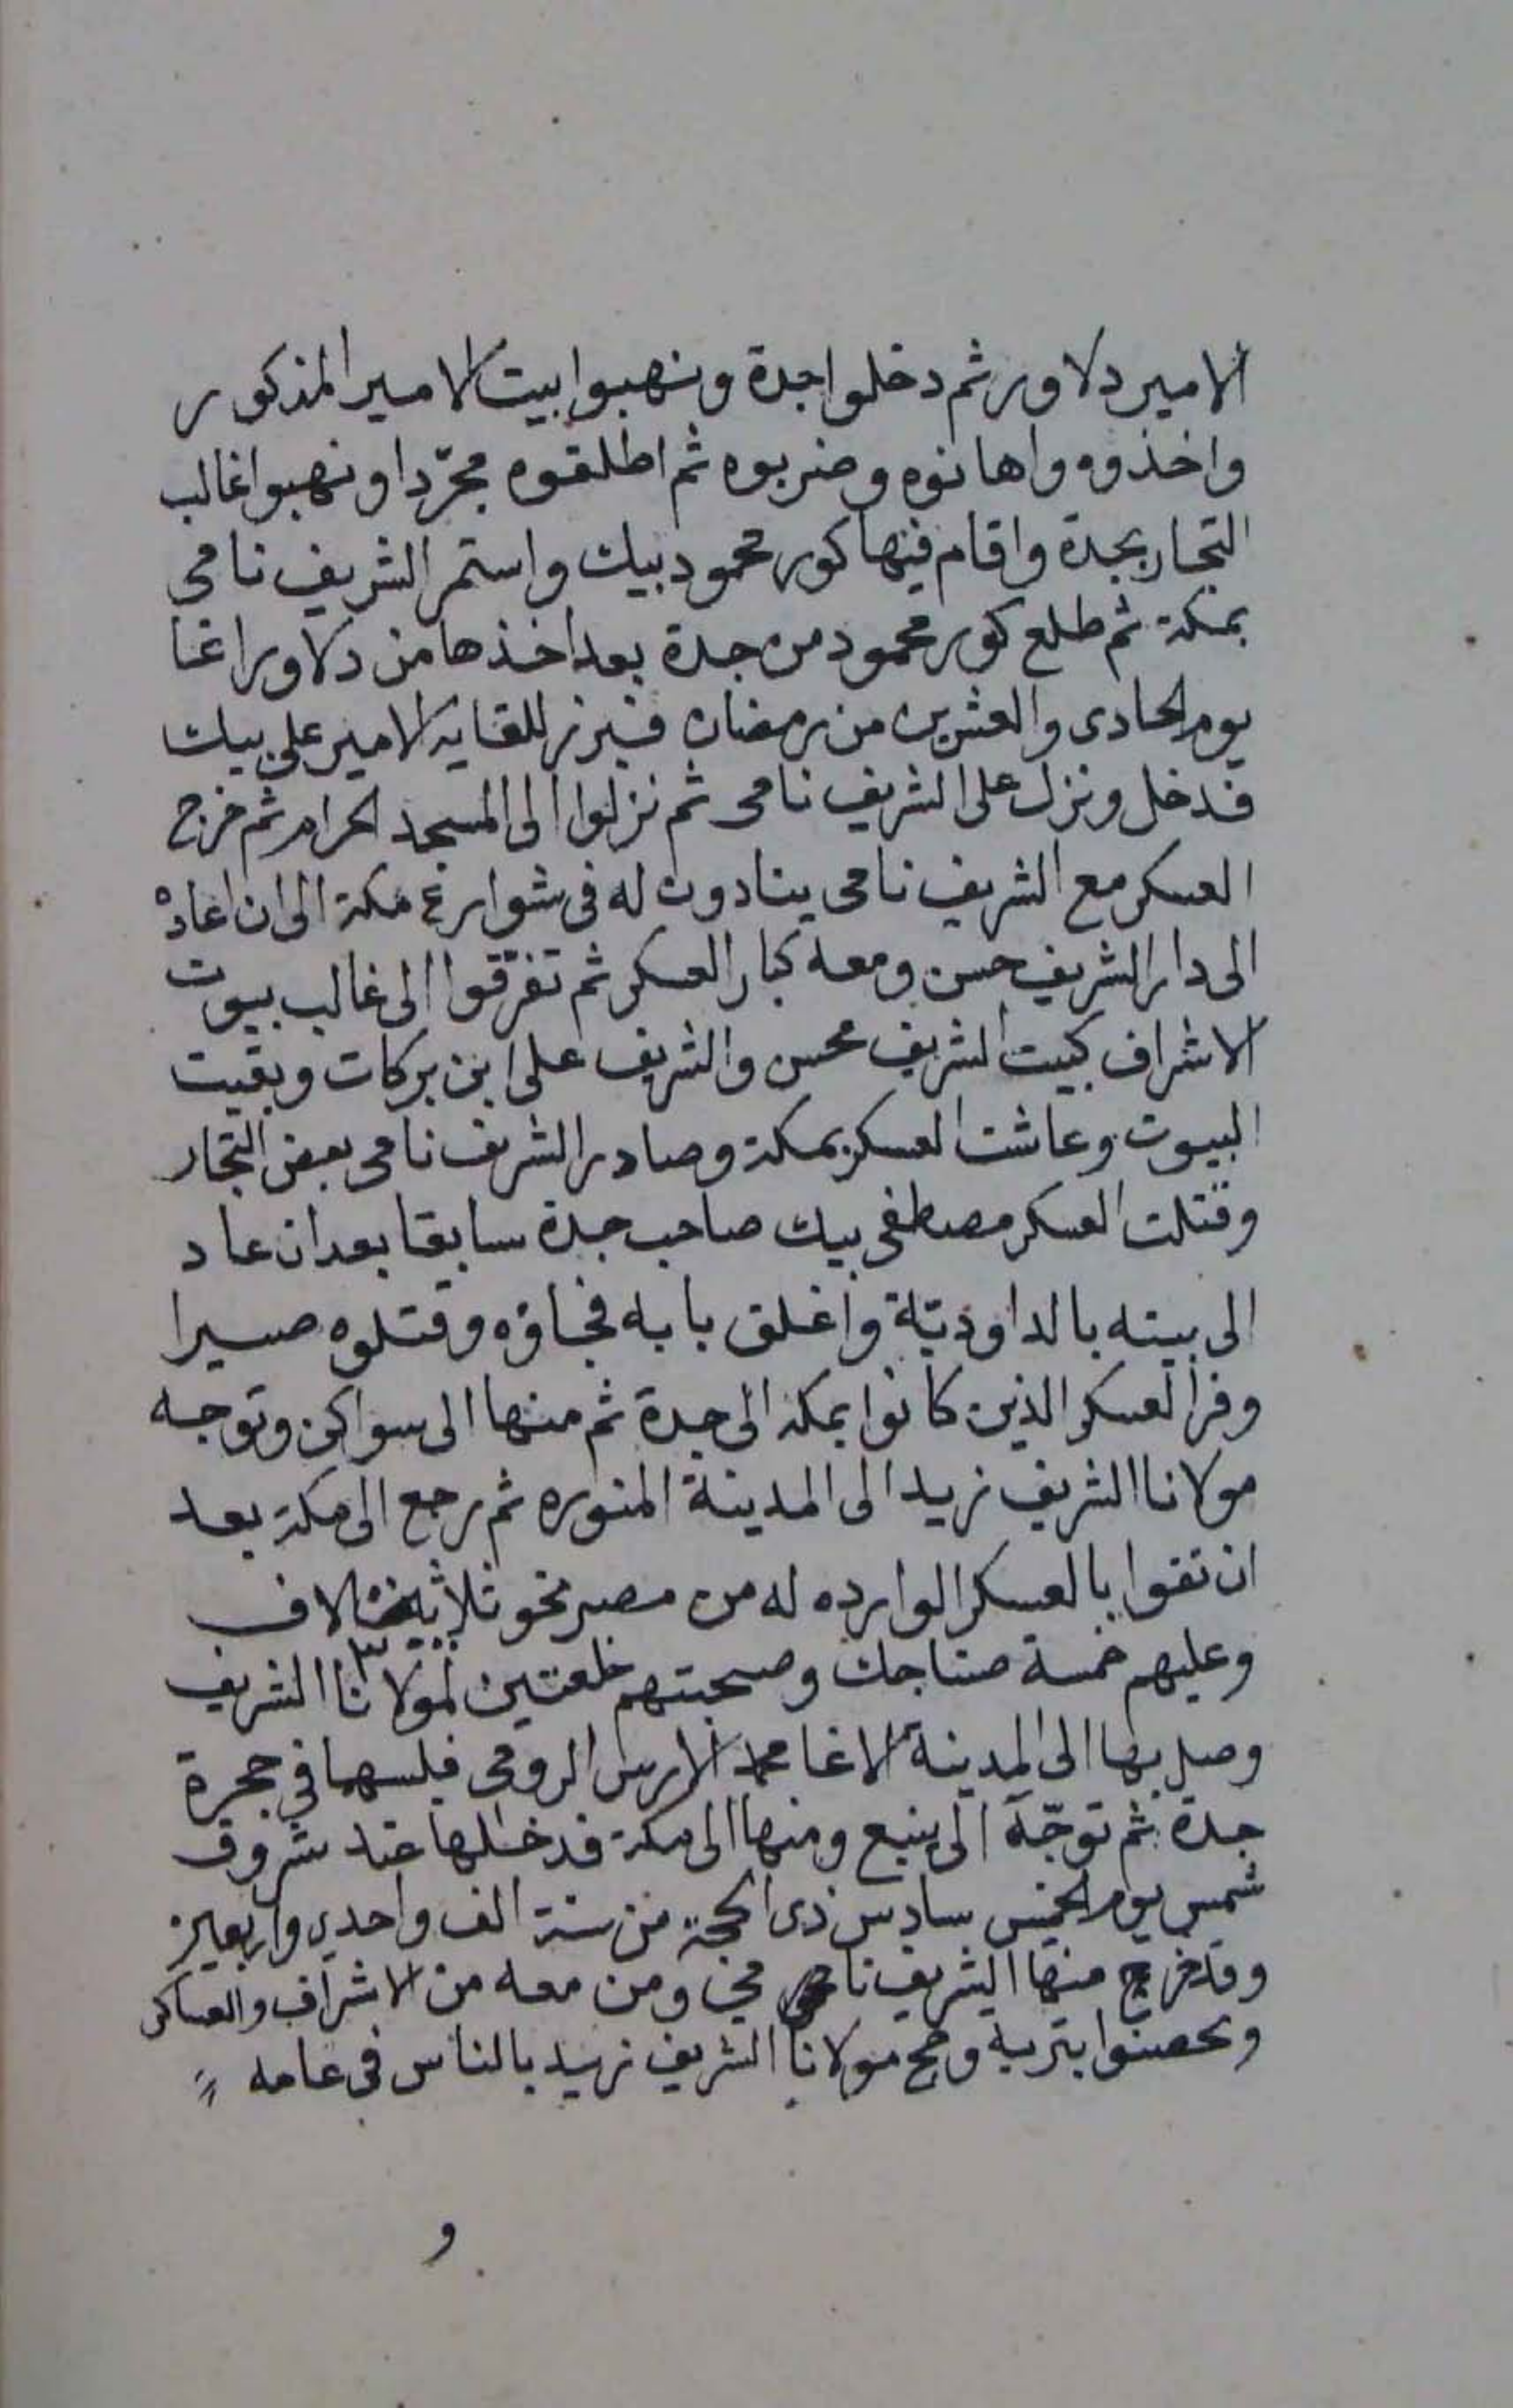 الامير دلاور ثم دخلوا جدة ونهبوا بيت الامير المذكور
واخذوه واهانوه وضربوه ثم اطلقوه مجرّدا ونهبوا غالب
التجار بجدة واقام فيها كور محمود بيك واستمر الشريف نامى
بمكة ثم طلع كور محمود من جدة بعد اخذها من دلاور اغا
يوم الحادى والعشرين من رمضان فبرز للقايه الامير على بيك
فدخل ونزل على الشريف نامى ثم نزلوا الى المسجد الحرام ثم خرج
العسكر مع الشريف نامى ينادون له فى شوارع مكة الى ان اعاده
الى دار الشريف حسن ومعه كبار العسكر ثم تفرّقوا الى غالب بيوت
الاشراف كبيت الشريف محسن والشريف على ابن بركات وبقيت
البيوت وعاشت العسكر بمكة وصادر الشريف نامى بعض التجار
وقتلت العسكر مصطفى بيك صاحب جدة سابقا بعد ان عاد
الى بيته بالداوديّة واغلق بابه فجاؤه وقتلوه صبرا
وفر العسكر الذين كانوا بمكة الى جدة ثم منها الى سواكن وتوجه
مولانا الشريف زيد الى المدينة المنوره ثم رجع الى مكة بعد
ان تقوا بالعسكر الوارده له من مصر نحو ثلاثة الاف
وعليهم خمسة صناجك وصحبتهم خلعتين لمولانا الشريف
وصل بها الى المدينة الاغا محمد الارس الرومى فلبسهما فى حجرة
جدة ثم توجّه الى ينبع ومنها الى مكة فدخلها عند شروق
شمس يوم الخميس سادس ذى الحجة من سنة الف واحدى واربعين
وقد خرج منها الشريف نامى ومن معه من الاشراف والعساكر
وتحصنوا بتربة وحج مولانا الشريف زيد بالناس فى عامه
و